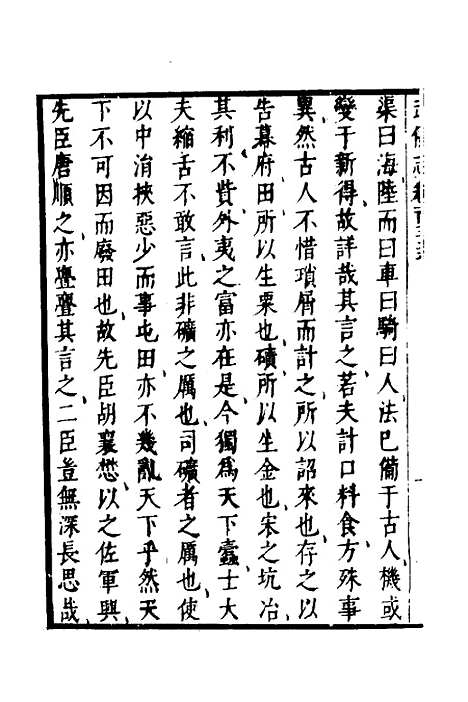 渠曰海陸而曰車曰騎曰人法已備于古人機或
變于新得故詳哉其言之若夫計口料食方殊事
異然古人不惜瑣屑而計之所以詔來也存之以
告幕府田所以生粟也礦所以生金也宋之坑冶
其利不貲外夷之富亦在是今獨爲天下蠹士大
夫縮舌不敢言此非礦之厲也司礦者之厲也使
以中涓挾惡少而事屯田亦不幾亂天下乎然天
下不可因而廢田也故先臣胡襄懋以之佐軍興
先臣唐順之亦亹亹其言之二臣豈無深長思哉